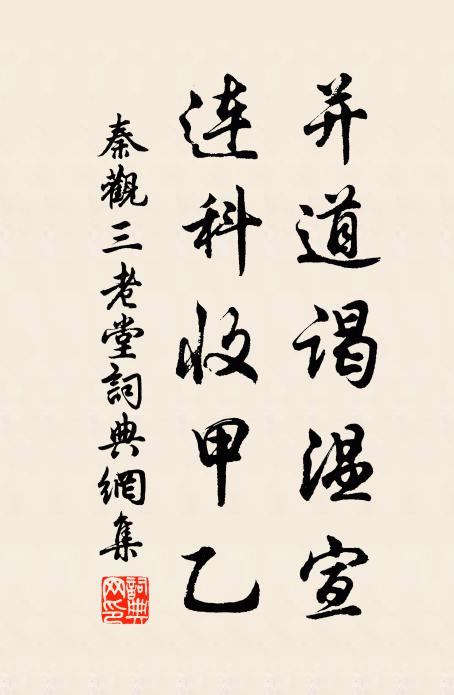 并道谒温宣
连科收甲乙
秦觀三老堂詞典網集
詞典網印